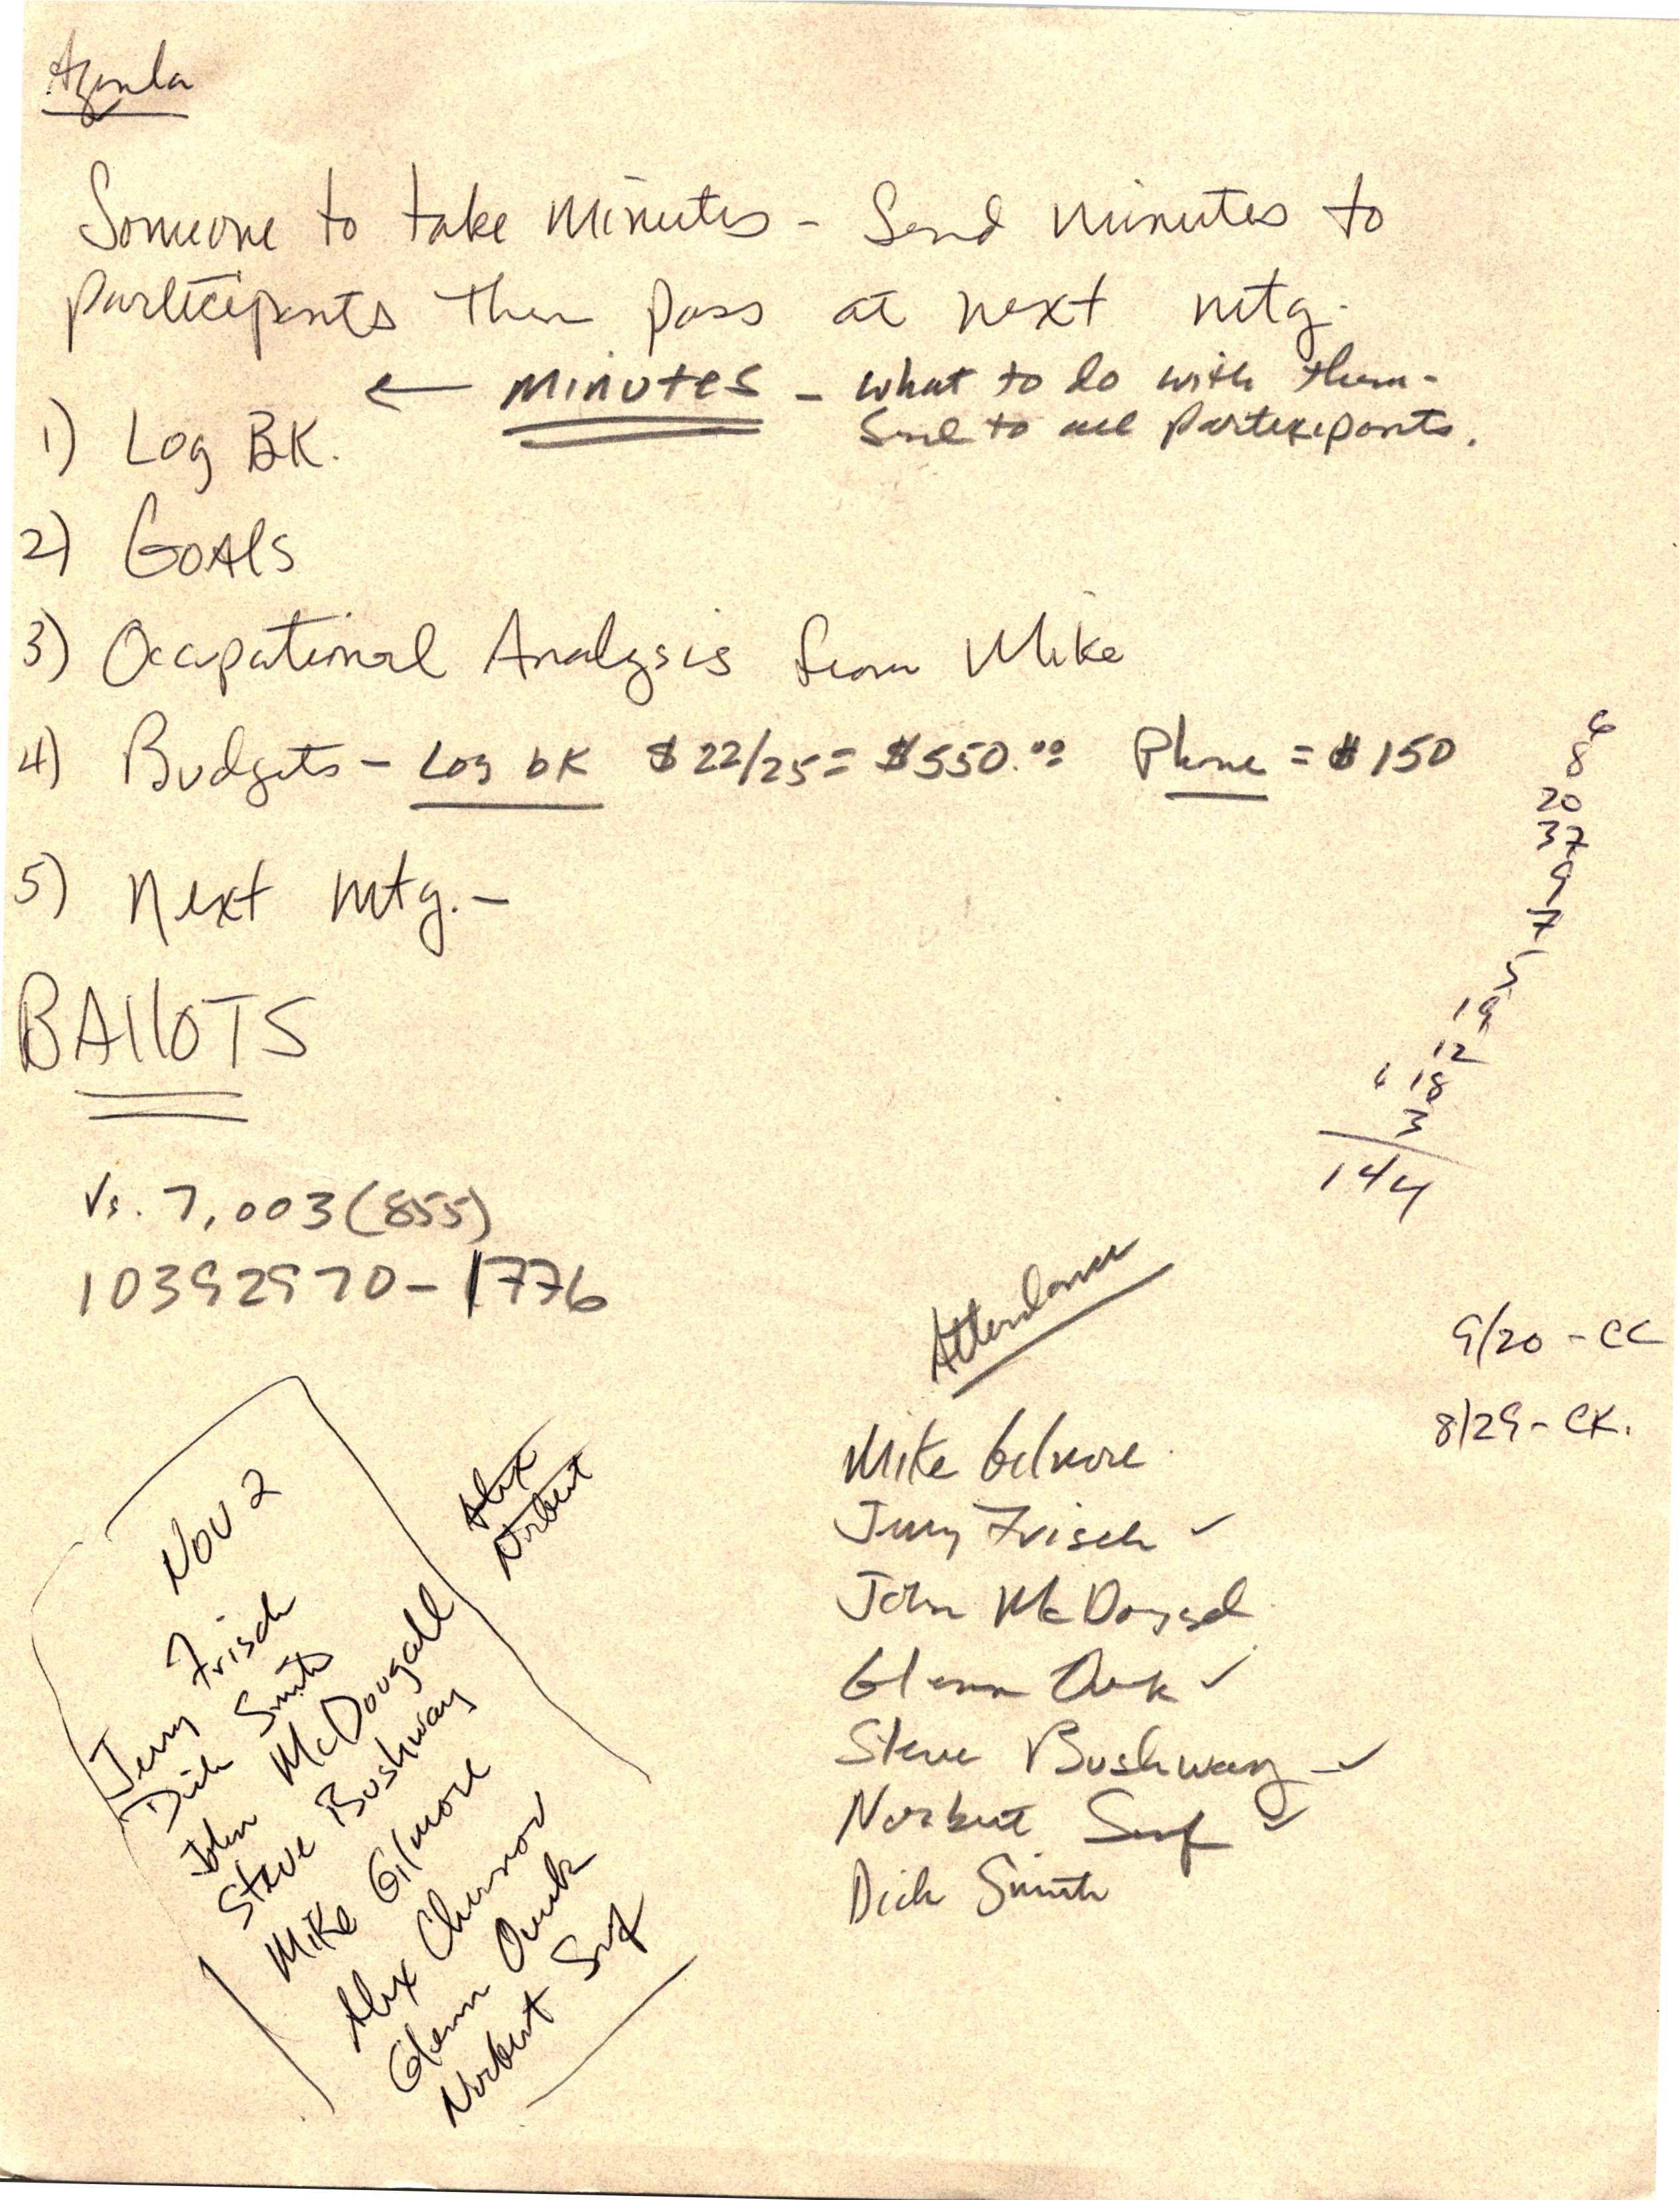 Agenda
Someone to take minutes - Send minutes to
participants then pass at next mtg.
← MINUTES - what to do with them -
Send to all participants.
1) Log BK.
2) GOAls
3) Occupational Analysis from Mike
4) Budgets - Log bK $22/25 = $550.00 Phone = $150
5) Next mtg. -
BAllOTS
6
8
20
37
9
7
5
19
12
18
3
144
Vs. 7,003 (855)
10392970-1776
Attendance
9/20 - CC
8/29 - CK.
Mike Gilmore
Jerry Frisch ✓
John McDougal
Glenn ✓
Steve Bushway - ✓
Norbert ✓
Dick Smith
Alex
Norbert
Nov 2
Jerry Frisch
Dick Smith
John McDougall
Steve Bushway
Mike Gilmore
Alex
Glenn
Norbert